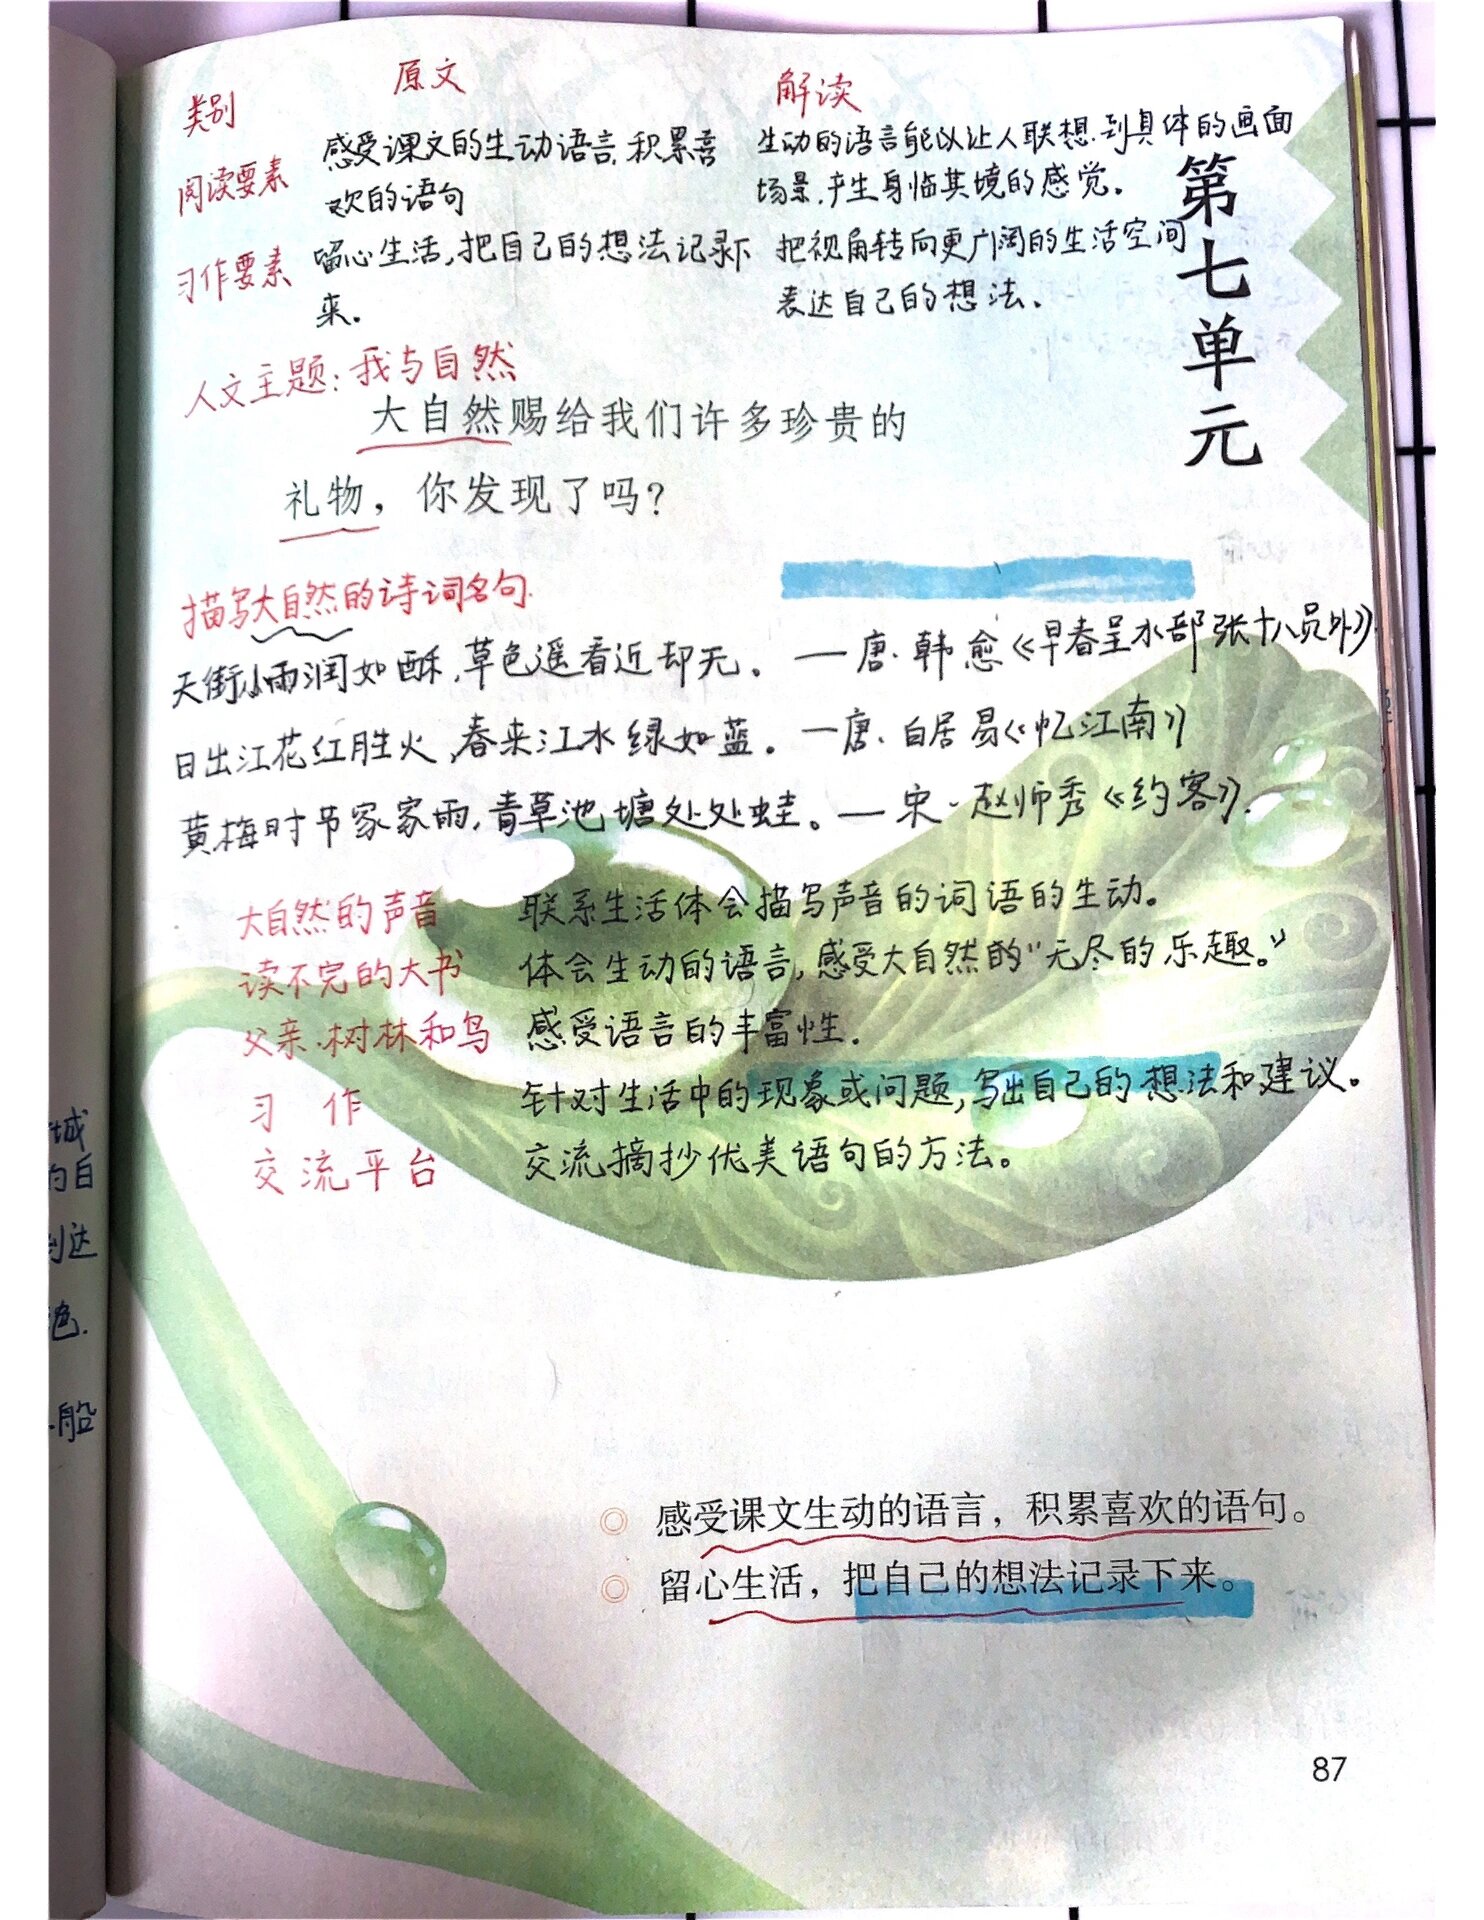 类别 原文 解读
阅读要素 感受课文的生动语言,积累喜 生动的语言能以让人联想到具体的画面
欢的语句 场景,产生身临其境的感觉。
习作要素 留心生活,把自己的想法记录下 把视角转向更广阔的生活空间
来。 表达自己的想法.
第七单元
人文主题:我与自然
大自然赐给我们许多珍贵的
礼物，你发现了吗？
描写大自然的诗词名句.
天街小雨润如酥,草色遥看近却无。—唐.韩愈《早春呈水部张十八员外》.
日出江花红胜火,春来江水绿如蓝。—唐.白居易《忆江南》
黄梅时节家家雨,青草池塘处处蛙。—宋.赵师秀《约客》.
大自然的声音 联系生活体会描写声音的词语的生动。
读不完的大书 体会生动的语言,感受大自然的“无尽的乐趣。”
父亲.树林和鸟 感受语言的丰富性.
习作 针对生活中的现象或问题,写出自己的想法和建议。
交流平台 交流摘抄优美语句的方法。
城
的自
到达
色.
船
◎ 感受课文生动的语言，积累喜欢的语句。
◎ 留心生活，把自己的想法记录下来。
87